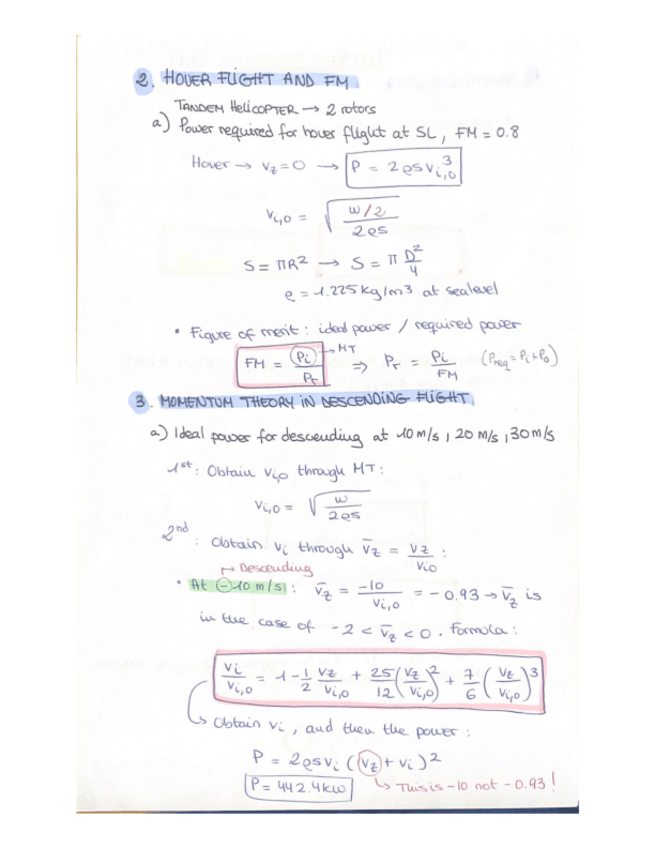 2. HOVER FLIGHT AND FM
TANDEM HELICOPTER → 2 rotors
a) Power required for hover flight at SL, FM = 0.8
Hover → Vz = 0 → P = 2ρSVi,0³
Vi,0 = √(W/2 / 2ρS)
S = πR² → S = π D²/4
ρ = 1.225 kg/m3 at sealevel
• Figure of merit: ideal power / required power
FM = Pi/Pr → MT ⇒ Pr = Pi/FM (Preq = Pi + Po)
3. MOMENTUM THEORY IN DESCENDING FLIGHT.
a) Ideal power for descending at 10 m/s, 20 m/s, 30 m/s
1st: Obtain Vi,o through MT:
Vi,0 = √(W / 2ρS)
2nd: Obtain Vi through V̄z = Vz/Vio :
↦ Descending
• At -10 m/s: V̄z = -10/Vi,0 = -0.93 → V̄z is
in the case of -2 < V̄z < 0. Formula:
Vi/Vi,0 = 1 - 1/2 Vz/Vi,0 + 25/12 (Vz/Vi,0)² + 7/6 (Vz/Vi,0)³
↳ Obtain Vi, and then the power:
P = 2ρSVi (Vz + Vi)²
P = 442.4 kW ↳ This is -10 not -0.93!